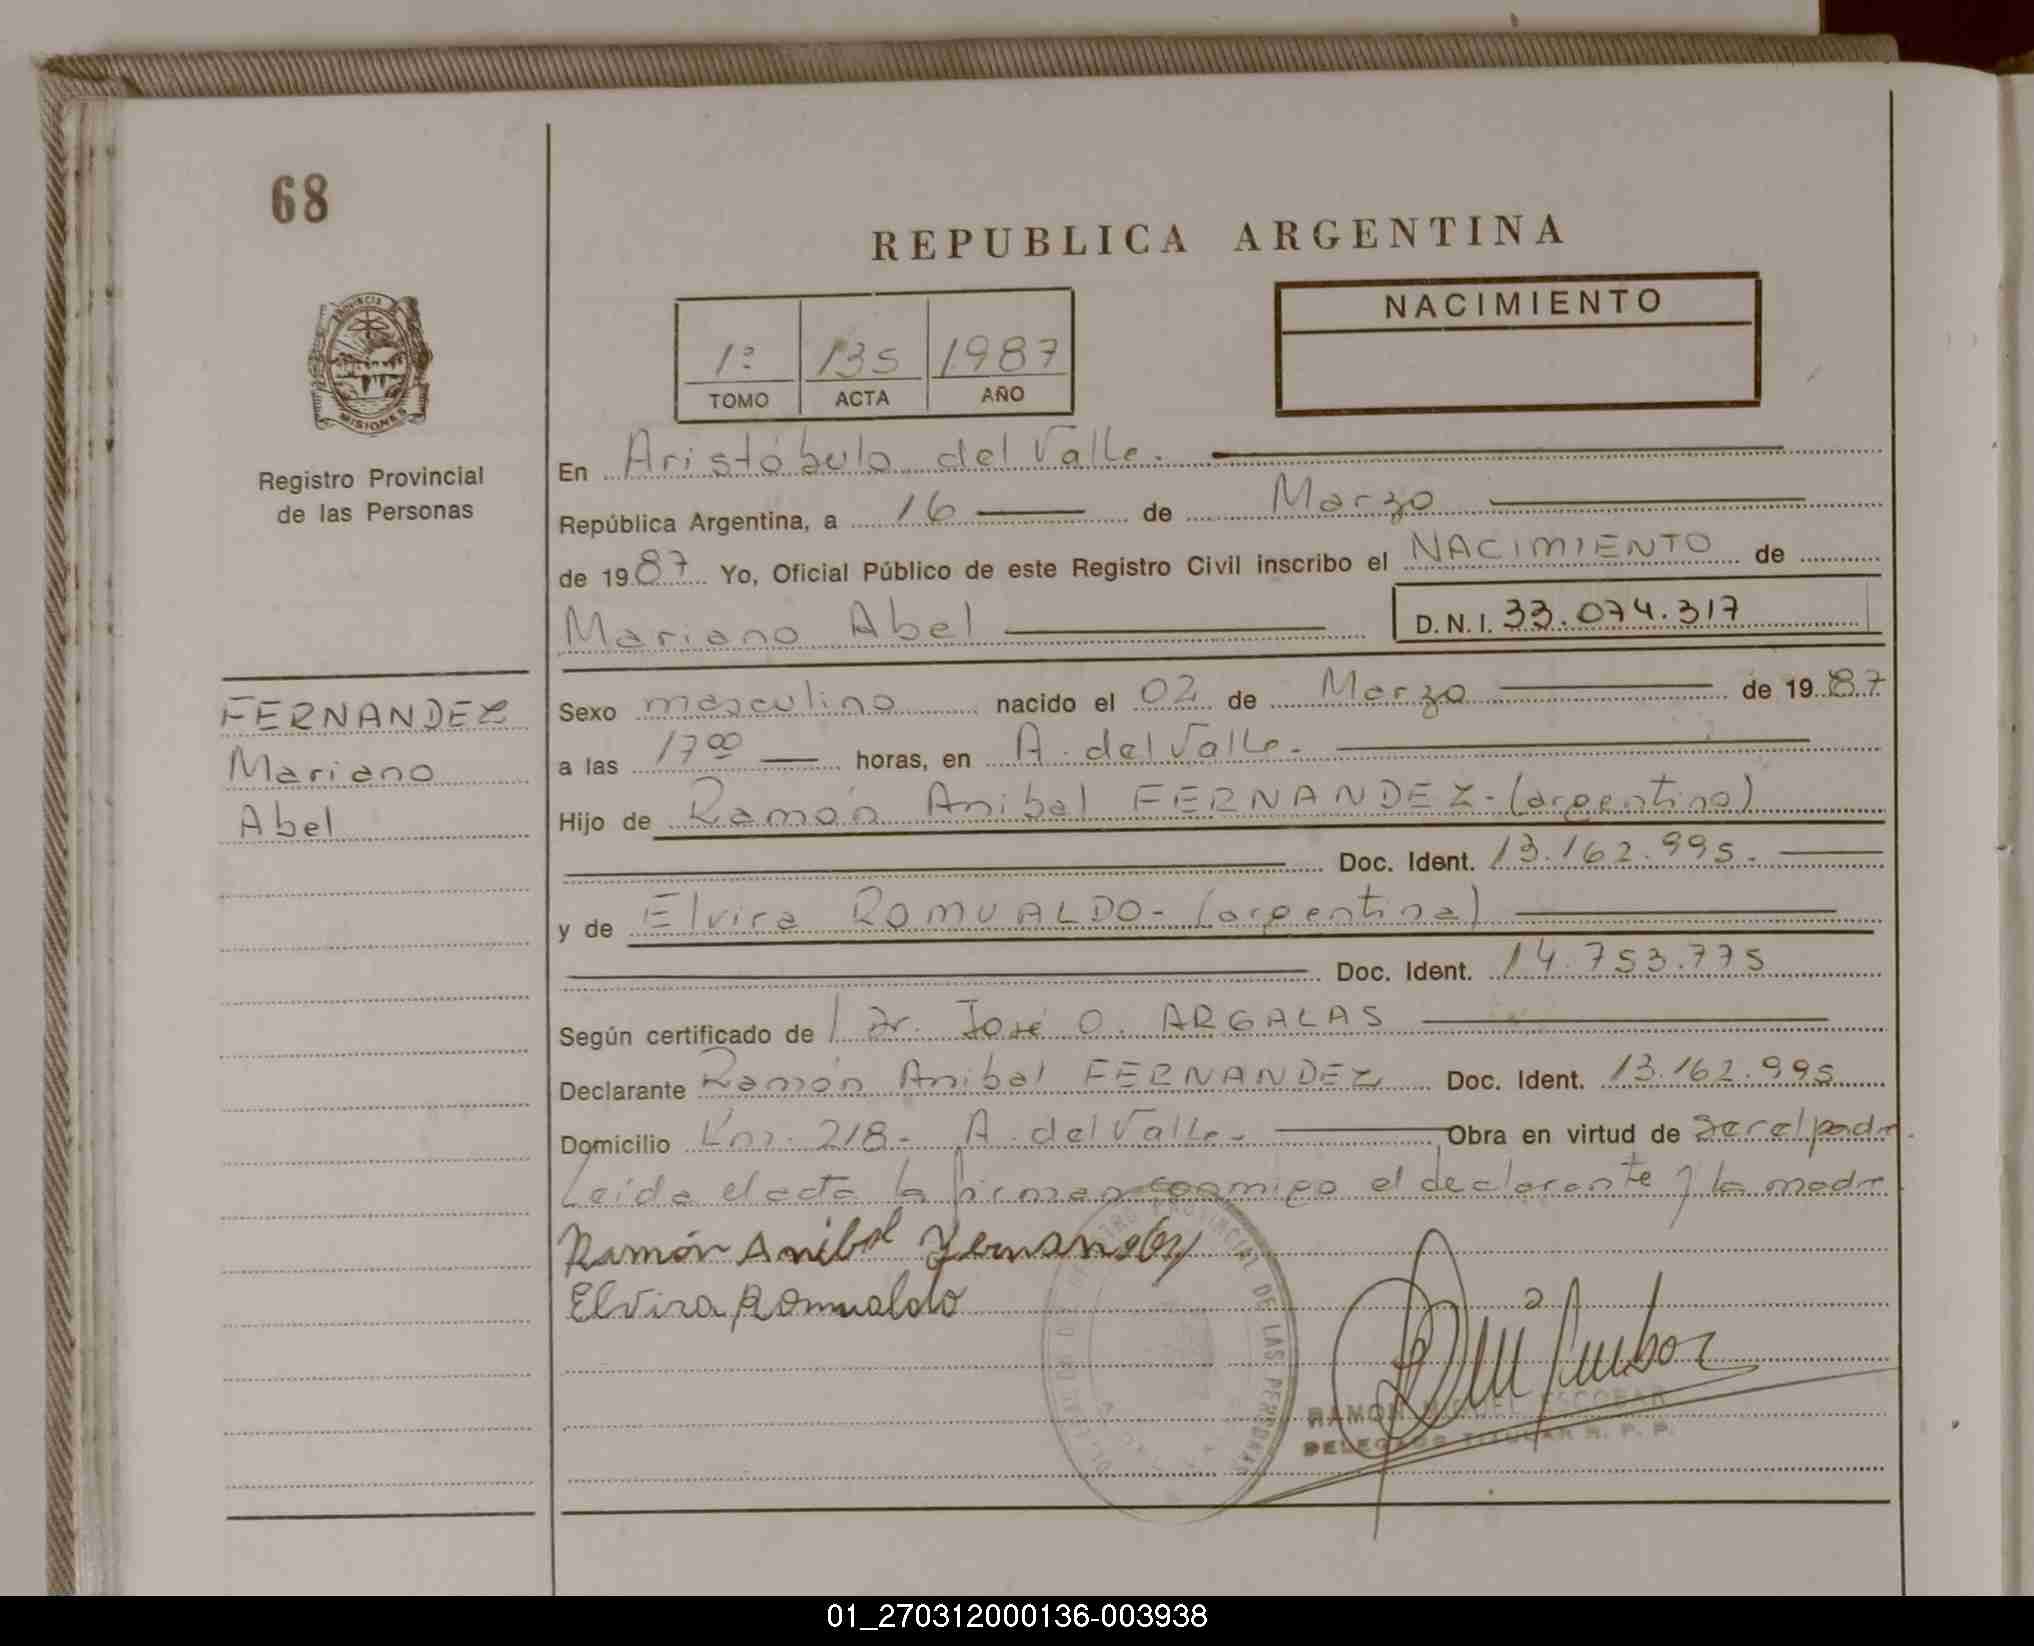 68
REPUBLICA ARGENTINA
PROVINCIA
MISIONES
Registro Provincial
de las Personas
1º 135 1987
TOMO ACTA AÑO
NACIMIENTO
En Aristóbulo del Valle.
República Argentina, a 16 de Marzo
de 1987 Yo, Oficial Público de este Registro Civil inscribo el NACIMIENTO de
Mariano Abel D.N.I. 33.074.317
FERNANDEZ
Mariano
Abel
Sexo masculino nacido el 02 de Marzo de 1987
a las 17⁰⁰ horas, en A. del Valle.
Hijo de Ramón Anibal FERNANDEZ-(argentino)
Doc. Ident. 13.162.995.
y de Elvira ROMUALDO-(argentina)
Doc. Ident. 14.753.775
Según certificado de Dr. José O. ARGALAS
Declarante Ramón Anibal FERNANDEZ Doc. Ident. 13.162.995
Domicilio 218- A. del Valle- Obra en virtud de ser el padre.
Leída el acta la firman conmigo el declarante y la madre.
Ramón Anibal Fernandez
Elvira Romualdo
PROVINCIAL DE LAS PERSONAS
RAMON MIGUEL ESCOBAR
DELEGADO TITULAR R. P. P.
01_270312000136-003938